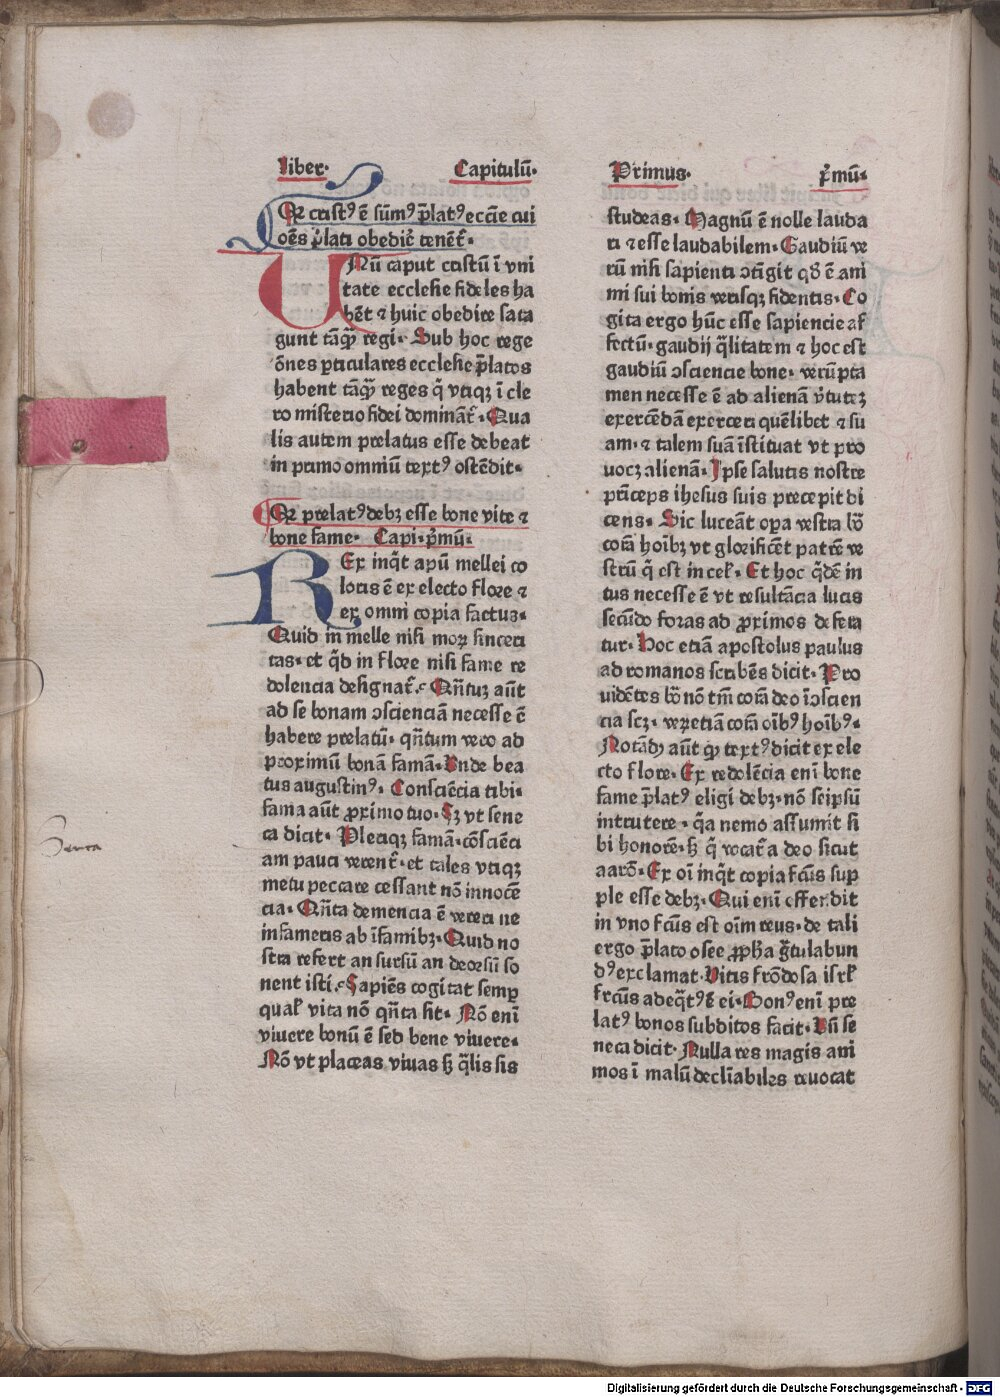 Liber· Capitulū·
Qꝛ cristꝰ ē sūmꝰ p̄latꝰ eccīe cui
oēs p̄lati obediꝛ̄ tenēt̄·
UNū caput cristū ī vni
tate ecclesie fideles ha
bēt ⁊ huic obedire sata
gunt tāqꝫ̄ regi· Sub hoc rege
ōnes pticulares ecclesie p̄latos
habent tāqꝫ̄ reges q̄ vtiqꝫ ī cle
ro misterio fidei domināt̄·Qua
lis autem prelatus esse debeat
in primo omniū textꝰ ostēdit·
Qꝛ prelatꝰ debꝫ esse bone vite ⁊
bone fame· Capi·p̄mū·
REx inq̄t apū mellei co
loris ē ex electo flore ⁊
ex omni copia factus·
Quid in melle nisi moꝝ sinceri
tas·et q̄d in flore nisi fame re
dolencia designat̄· Qn̄tuꝫ aūt
ad se bonam ↄscienciā necesse ē
habere prelatū· qn̄tum vero ad
proximū bonā famā·Unde bea
tus augustinꝰ· Consciēcia tibi·
fama aūt proximo tuo·Sꝫ vt sene
ca dicit· Pleriqꝫ famā·cōsciēci
am pauci verent̄·et tales vtiqꝫ
metu peccare cessant nō innocē
cia·Qn̄ta demencia ē vereri ne
infameris ab īfamibꝫ·Quid no
stra refert an sursū an deorsū so
nent isti·Sapiēs cogitat semp̱
qual̕ vita nō qn̄ta sit· Nō enī
viuere bonū ē sed bene viuere·
Nō vt placeas viuas sꝫ q̄lis sis
Primus· p̄mū·
studeas· Magnū ē nolle lauda
ri ⁊ esse laudabilem· Gaudiū ve
rū nisi sapienti ↄtīgit qd̄ ē ani
mi sui bonis verisqꝫ fidentis·Co
gita ergo hūc esse sapiencie af
fectū·gaudij q̄litatem ⁊ hoc est
gaudiū ↄsciencie bone· verūpta
men necesse ē ad alienā v̄tuteꝫ
exercēdā exerceri quēlibet ⁊ su
am·⁊ talem suā īstituat vt pro
uocꝫ alienā·Ipse salutis nostre
prīceps ihesus suis precepit di
cens· Sic luceāt op̱a vestra bō
corā hoībꝫ vt glorificēt patrē ve
strū q̄ est in cel̕·Et hoc q̄dē in
tus necesse ē vt resultācia lucis
secūdo foras ad proximos defera
tur·Hoc etiā apostolus paulus
ad romanos scribēs dicit· Pro
uidētes bō nō tm̄ corā deo īↄscien
cia scꝫ· veꝝetiā corā oībꝰ hoībꝰ·
Notādꝫ aūt qꝫ̄ textꝰ dicit ex ele
cto flore·Ex redolēcia enī bone
fame p̄latꝰ eligi debꝫ·nō seip̄sū
intrutere·q̄a nemo assumit si
bi honorē·sꝫ q̄ vocat̄ a deo sicut
aarō·Ex oī inq̄t copia fc̄us sup
ple esse debꝫ·Qui enī offendit
in vno fc̄us est oīm reus·de tali
ergo p̄lato osee ꝓph̄a gr̄tulabun
dꝰ exclamat·Vitis frōdosa isrl̕
frc̄us adeq̄tꝰ ē ei·Bonꝰ enī pre
latꝰ bonos subditos facit·Vn̄ se
neca dicit· Nulla res magis ani
mos ī malū declīabiles reuocat
Digitalisierung gefördert durch die Deutsche Forschungsgemeinschaft - DFG